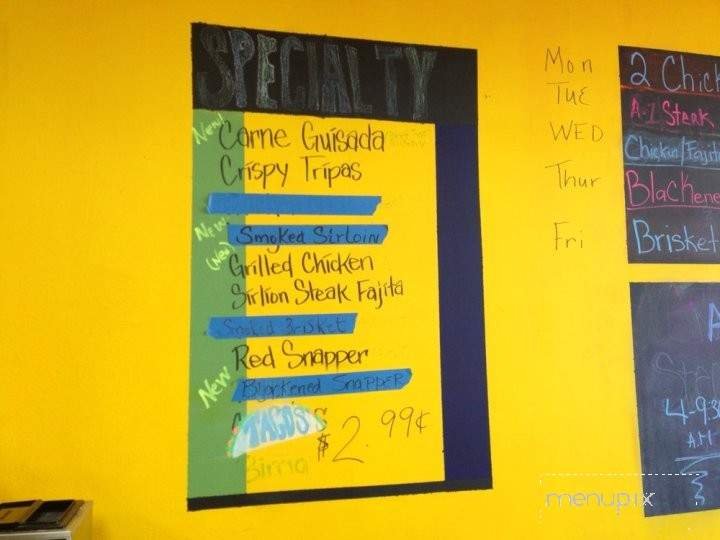 SPECIALTY
New!
Carne Guisada
Crispy Tripas
New
Smoked Sirloin
(New)
Grilled Chicken
Sirlion Steak Fajita
Smoked Brisket
Red Snapper
New
Blackened Snapper
TACOS
$2.99¢
Birria
Mon
TUE
WED
Thur
Fri
2 Chic
A-1 Steak
Chicken/Fajita
Blackene
Brisket
A
4-9:30
A.M
menupix